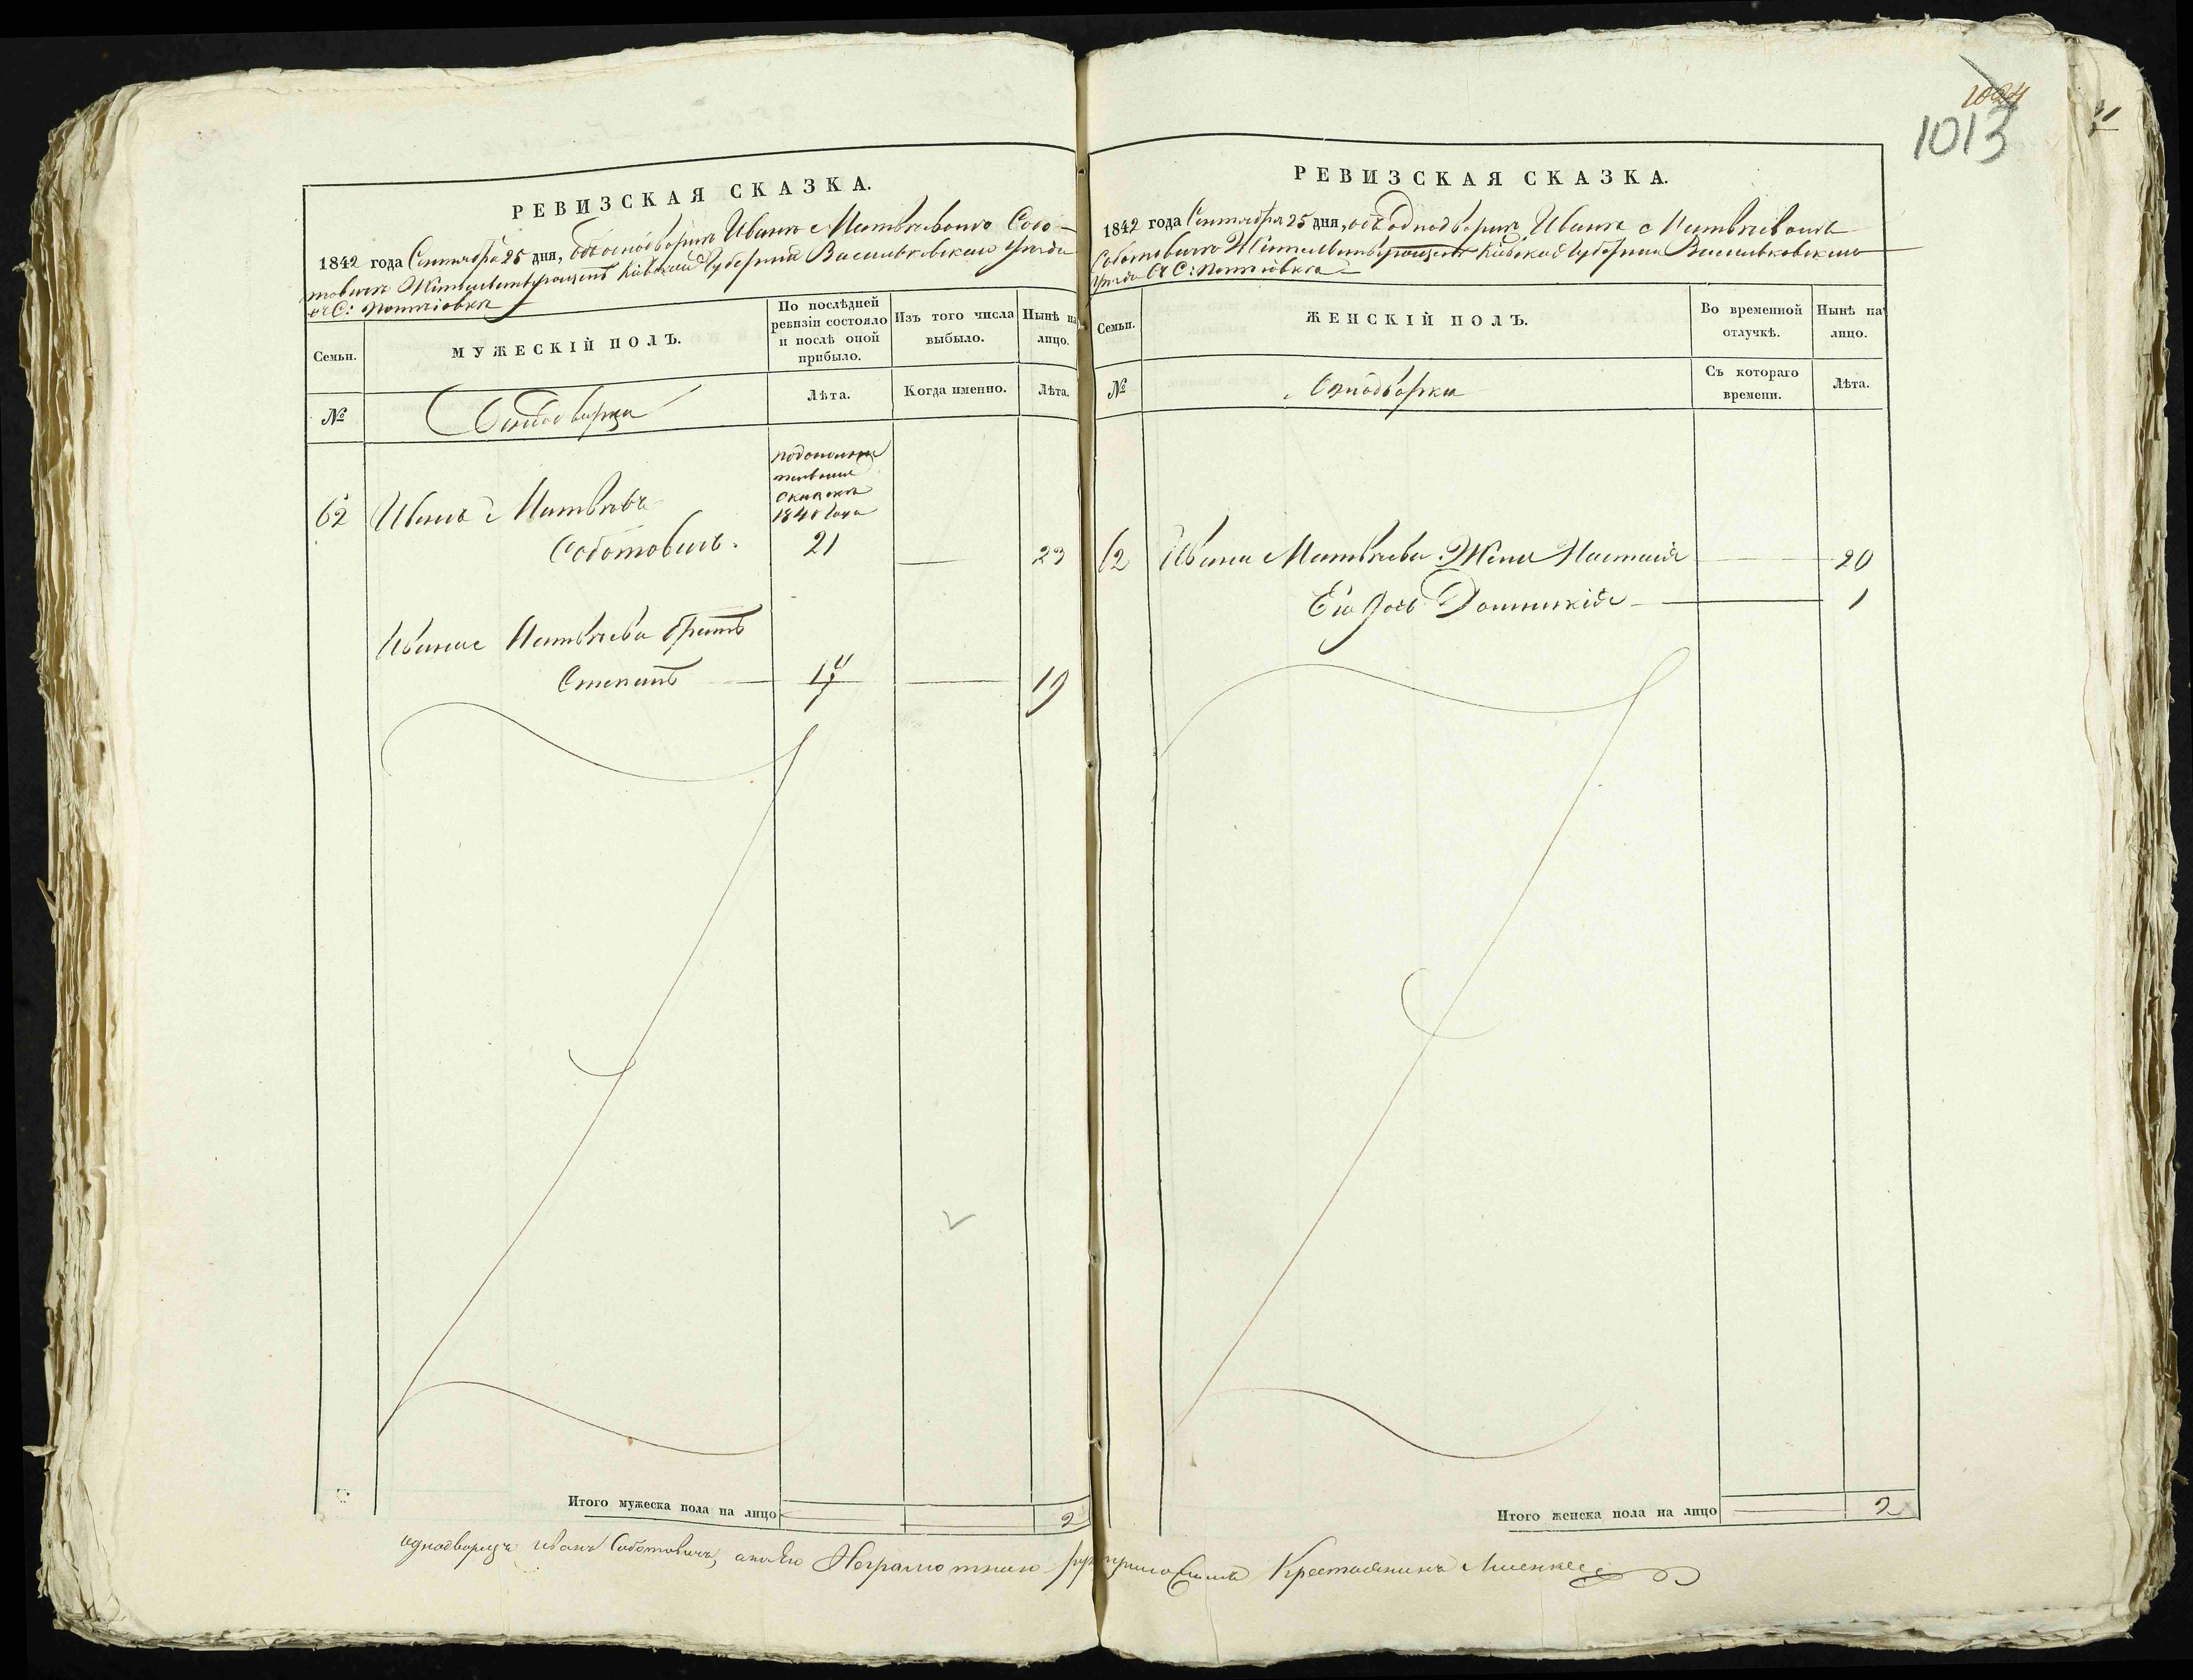 1024
1013
РЕВИЗСКАЯ СКАЗКА.
1842 года Сентября 25 дня, объ однодворцѣ Иванѣ Матвѣевомъ Собо-
товичѣ Жительствующемъ Кіевской Губерніи Васильковскаго уѣзда
въ С:
Семьи.
МУЖЕСКІЙ ПОЛЪ.
По послѣдней ревизіи состояло и послѣ оной прибыло.
Изъ того числа выбыло.
Нынѣ на лицо.
№
Однодворцы
Лѣта.
Когда именно.
Лѣта.
по дополни
тельной
сказкѣ
1840 года
62 Иванъ Матвѣевъ
Соботовичъ. 21 — 23
Ивана Матвѣева братъ
Степанъ — 17 — 19
Итого мужеска пола на лицо 2
РЕВИЗСКАЯ СКАЗКА.
1842 года Сентября 25 дня, объ однодворцѣ Иванѣ Матвѣевомъ
Соботовичѣ Жительствующемъ Кіевской Губерніи Васильковскаго
уѣзда въ С:
Семьи.
ЖЕНСКІЙ ПОЛЪ.
Во временной отлучкѣ.
Нынѣ на лицо.
№
Однодворки
Съ котораго времени.
Лѣта.
62 Ивана Матвѣева Жена Настасія — 20
Его дочь Домникія — 1
Итого женска пола на лицо 2
однодворецъ иванъ Соботовичъ, а по его Неграмотности руку приложилъ Крестьянинъ